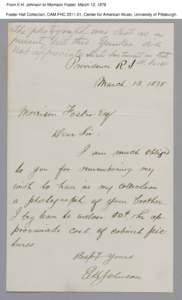 From K.H. Johnson to Morrison Foster, March 13, 1878
Foster Hall Collection, CAM.FHC.2011.01, Center for American Music, University of Pittsburgh
The photograph was sent as a
present, but this Yankee did
not appreciate
Providence R I
March 13, 1878
Morrison Foster Esq
Dear Sir:
I am much obliged
to you for remembering my
wish to have in my collection
a photograph of your brother.
I beg leave to enclose 50¢ the ap-
proximate cost of cabinet pic-
tures.
Respt Yours
Johnson